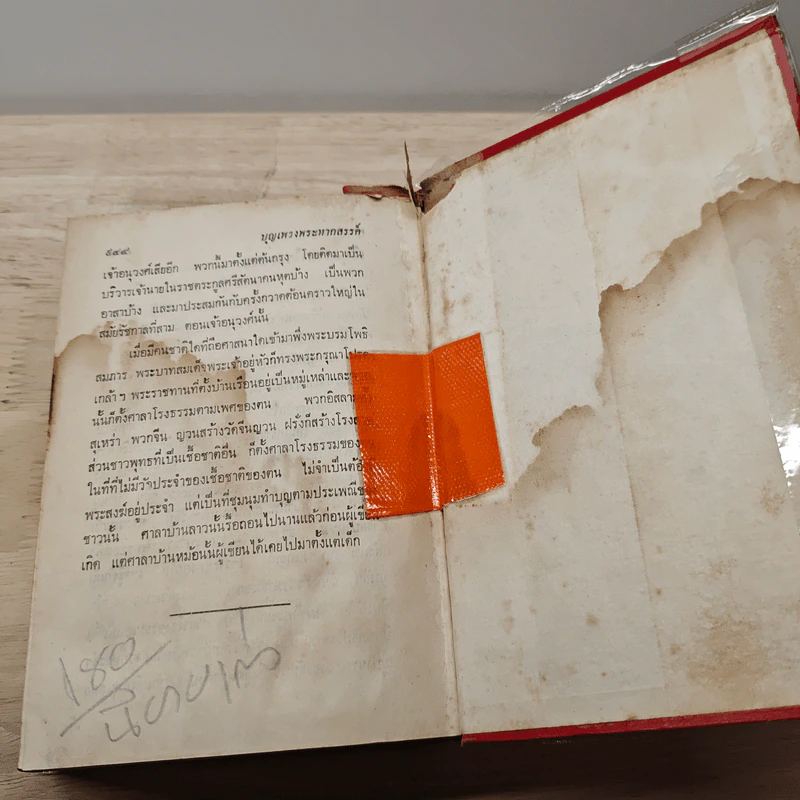 ๕๔๔ บุญเพรงพระหากสรรค์
เจ้าอนุวงศ์เสียอีก พวกนี้มาตั้งแต่ต้นกรุง โดยติดมาเป็น
บริวารเจ้านายในราชตระกูลศรีสัตนาคนหุตบ้าง เป็นพวก
อาสาบ้าง และมาประสมกันกับครั้งกวาดต้อนคราวใหญ่ใน
สมัยรัชกาลที่สาม ตอนเจ้าอนุวงศ์นั้น
เมื่อมีคนชาติใดที่ถือศาสนาใดเข้ามาพึ่งพระบรมโพธิ
สมภาร พระบาทสมเด็จพระเจ้าอยู่หัวก็ทรงพระกรุณา
เกล้าฯ พระราชทานที่ตั้งบ้านเรือนอยู่เป็นหมู่เหล่าและ
นั้นก็ตั้งศาลาโรงธรรมตามเพศของตน พวกอิสลาม
สุเหร่า พวกจีน ญวนสร้างวัดจีนญวน ฝรั่งก็สร้าง
ส่วนชาวพุทธที่เป็นเชื้อชาติอื่น ก็ตั้งศาลาโรงธรรม
ในที่ที่ไม่มีวัดประจำของเชื้อชาติของตน ไม่จำเป็น
พระสงฆ์อยู่ประจำ แต่เป็นที่ชุมนุมทำบุญตามประเพณี
ชาวนั้น ศาลาบ้านลาวนั้นรื้อถอนไปนานแล้วก่อน
เกิด แต่ศาลาบ้านหม้อนั้นผู้เขียนได้เคยไปมาตั้งแต่เด็ก
180